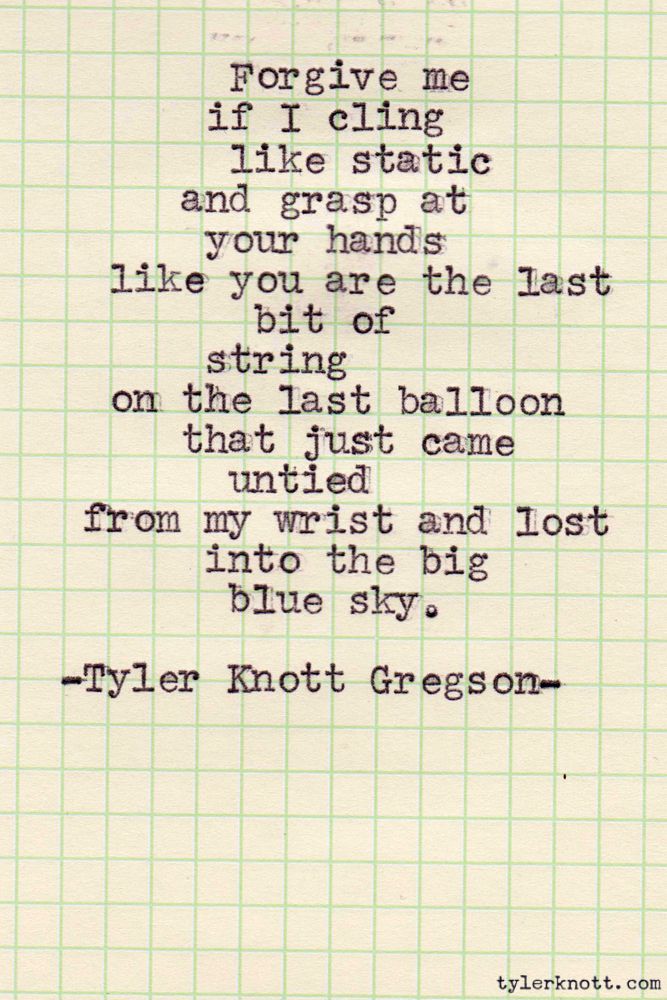 Forgive me
if I cling
like static
and grasp at
your hands
like you are the last
bit of
string
on the last balloon
that just came
untied
from my wrist and lost
into the big
blue sky.
-Tyler Knott Gregson-
tylerknott.com